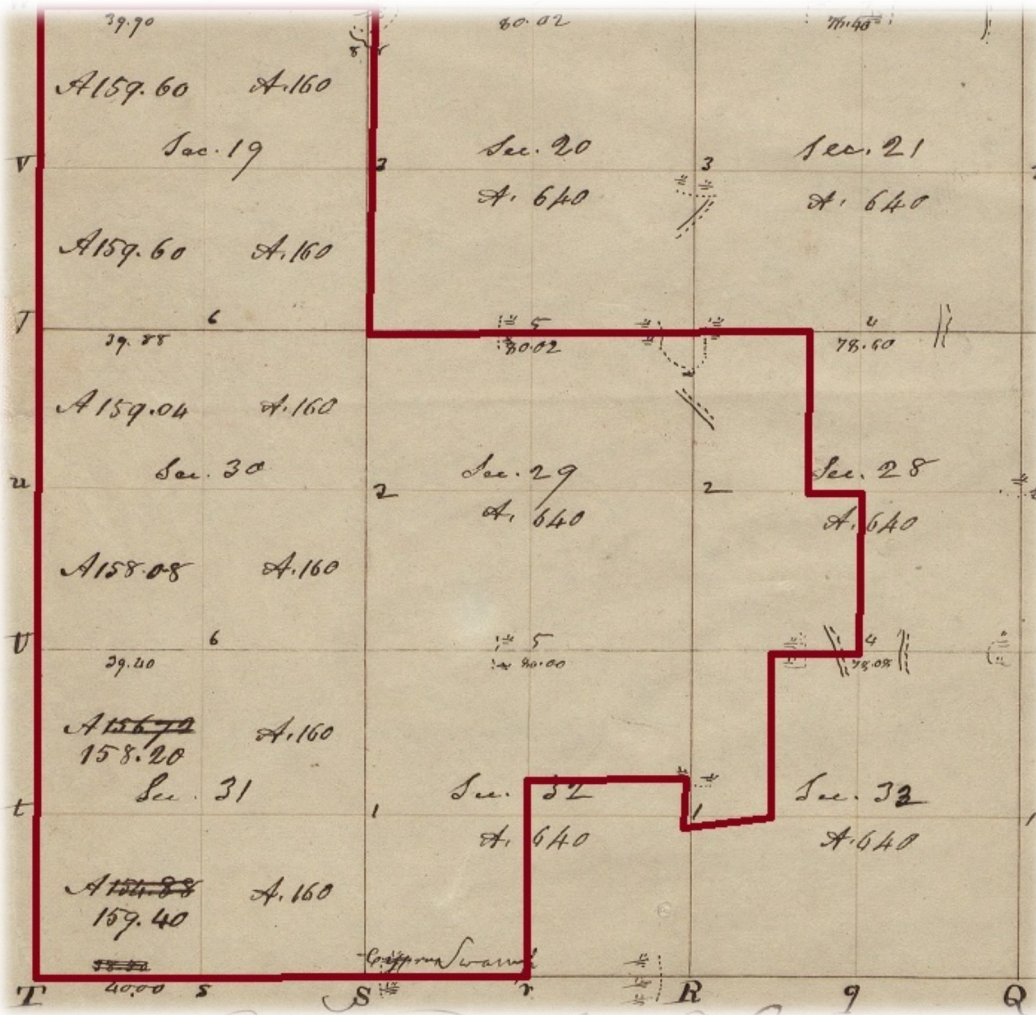 39.90 80.02 76.40
8
A159.60 A.160
Sec. 19 Sec. 20 Sec. 21
V 3 3
A. 640 A. 640
A159.60 A.160
T 6 5 4
39.88 80.02 78.60
A159.04 A.160
Sec. 30 Sec. 29 Sec. 28
u 2 2
A. 640 A. 640
A158.08 A.160
V 6 5 4
39.40 80.00 78.08
A156.72 A.160
158.20
Sec. 31 Sec. 32 Sec. 33
t 1 1 1
A. 640 A. 640
A154.88 A.160
159.40
Cypress Swamp
40.00
T s S r R q Q